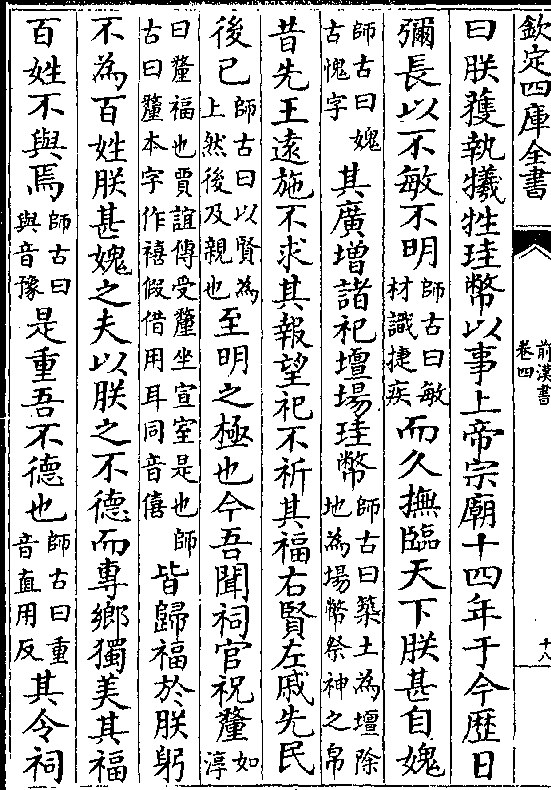 欽定四庫全書
前漢書
卷四
十八
曰朕獲執犧牲珪幣以事上帝宗廟十四年于今歷日
彌長以不敏不明師古曰敏材識捷疾而久撫臨天下朕甚自媿
師古曰媿古愧字其廣增諸祀壇場珪幣師古曰築土為壇除地為場幣祭神之帛
昔先王遠施不求其報望祀不祈其福右賢左戚先民
後己師古曰以賢為上然後及親也至明之極也今吾聞祠官祝釐如淳
曰釐福也賈誼傳受釐坐宣室是也師古曰釐本字作禧假借用耳同音僖皆歸福於朕躬
不為百姓朕甚媿之夫以朕之不德而專鄉獨美其福
百姓不與焉師古曰與音豫是重吾不德也師古曰重音直用反其令祠